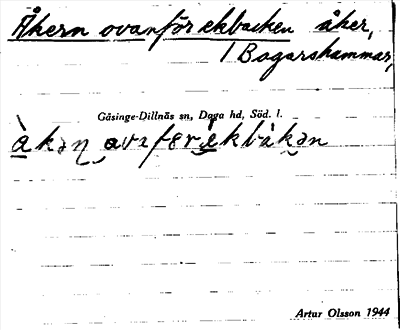 Åkern ovanför ekbacken åker,
1 Bagarshammar,
Gåsinge-Dillnäs sn, Daga hd, Söd. l.
Artur Olsson 1944